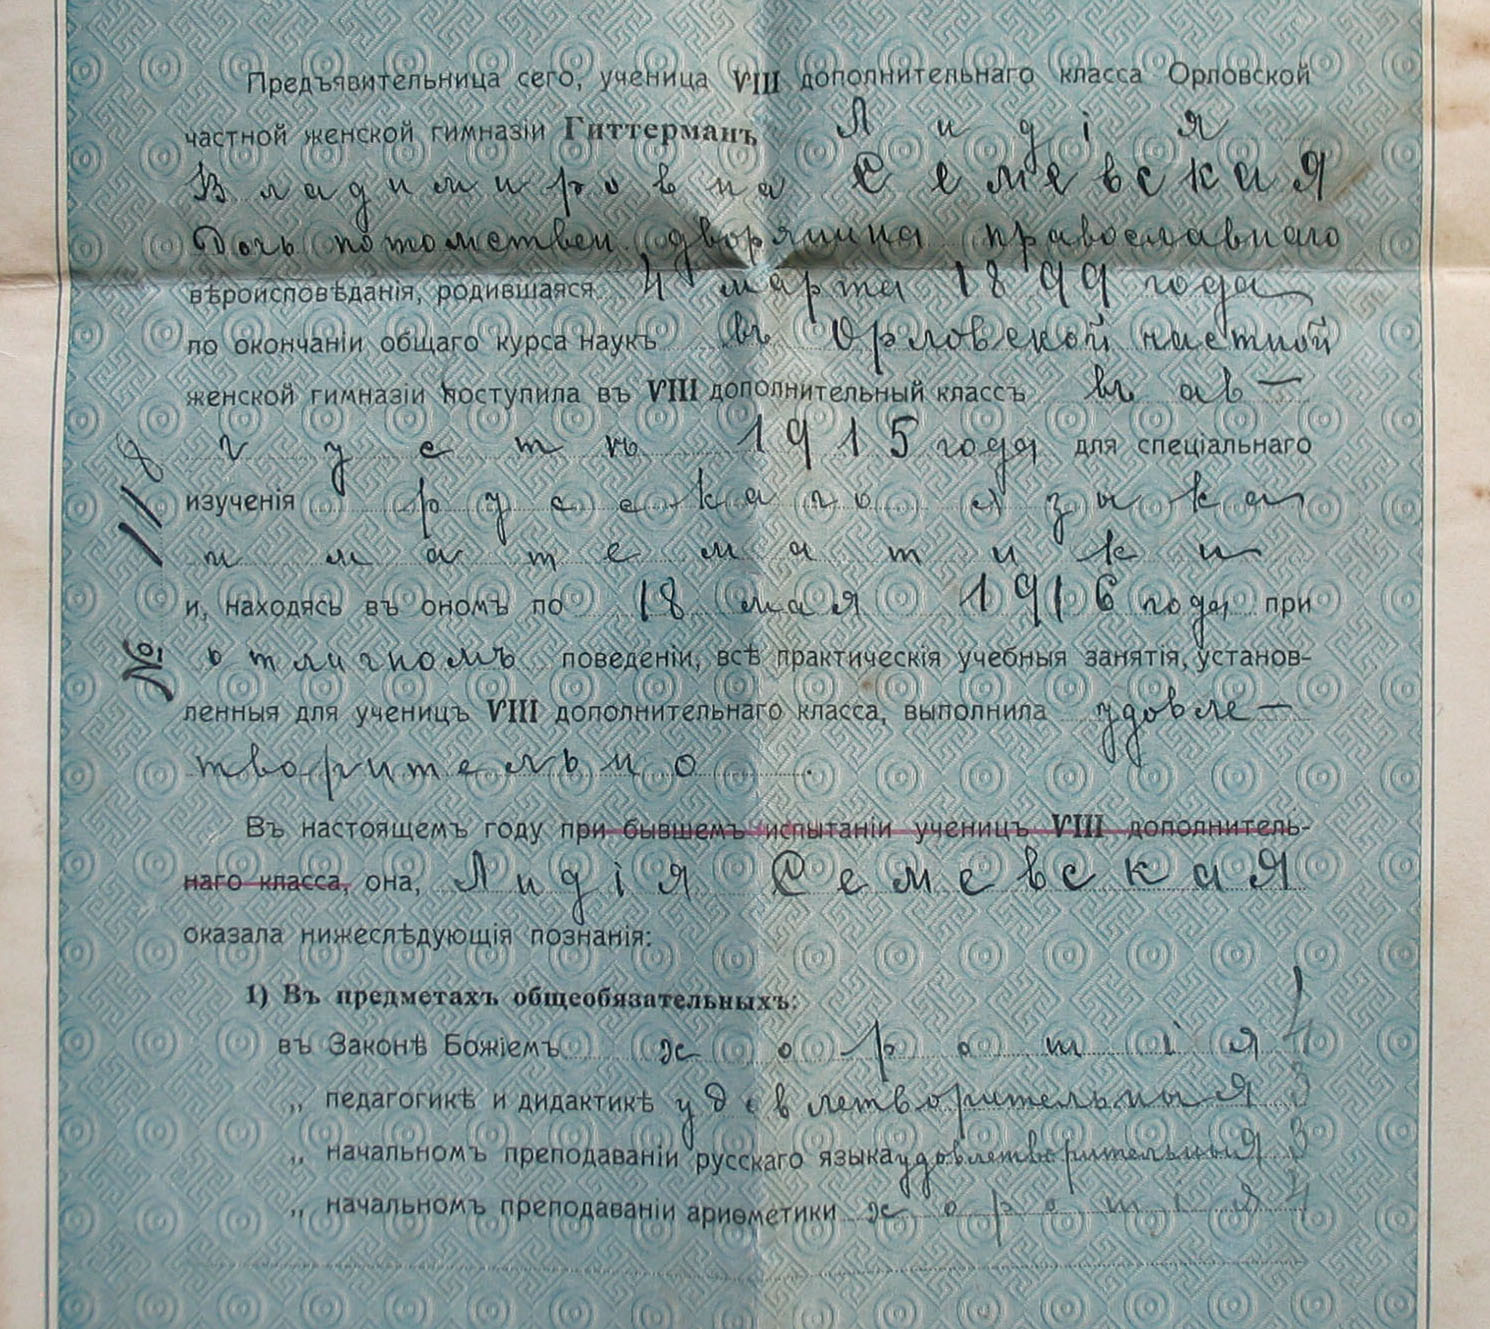 Предъявительница сего, ученица VIII дополнительнаго класса Орловской
частной женской гимназіи Гиттерманъ Лидія
Владимировна Семевская
Дочь потомствен. дворянина православнаго
вѣроисповѣданія, родившаяся 4 марта 1899 года
по окончаніи общаго курса наукъ въ Орловской частной
женской гимназіи поступила въ VIII дополнительный классъ въ ав-
густѣ 1915 года для спеціальнаго
изученія русскаго языка
и математики
и, находясь въ ономъ по 18 мая 1916 года при
отличномъ поведеніи, всѣ практическія учебныя занятія, установ-
ленныя для ученицъ VIII дополнительнаго класса, выполнила удовле-
творительно.
Въ настоящемъ году при бывшемъ испытаніи ученицъ VIII дополнитель-
наго класса, она, Лидія Семевская
оказала нижеслѣдующія познанія:
1) Въ предметахъ общеобязательныхъ:
въ Законѣ Божіемъ хорошія 4
„ педагогикѣ и дидактикѣ удовлетворительныя 3
„ начальномъ преподаваніи русскаго языка удовлетворительныя 3
„ начальномъ преподаваніи ариѳметики хорошія 4
№ 118